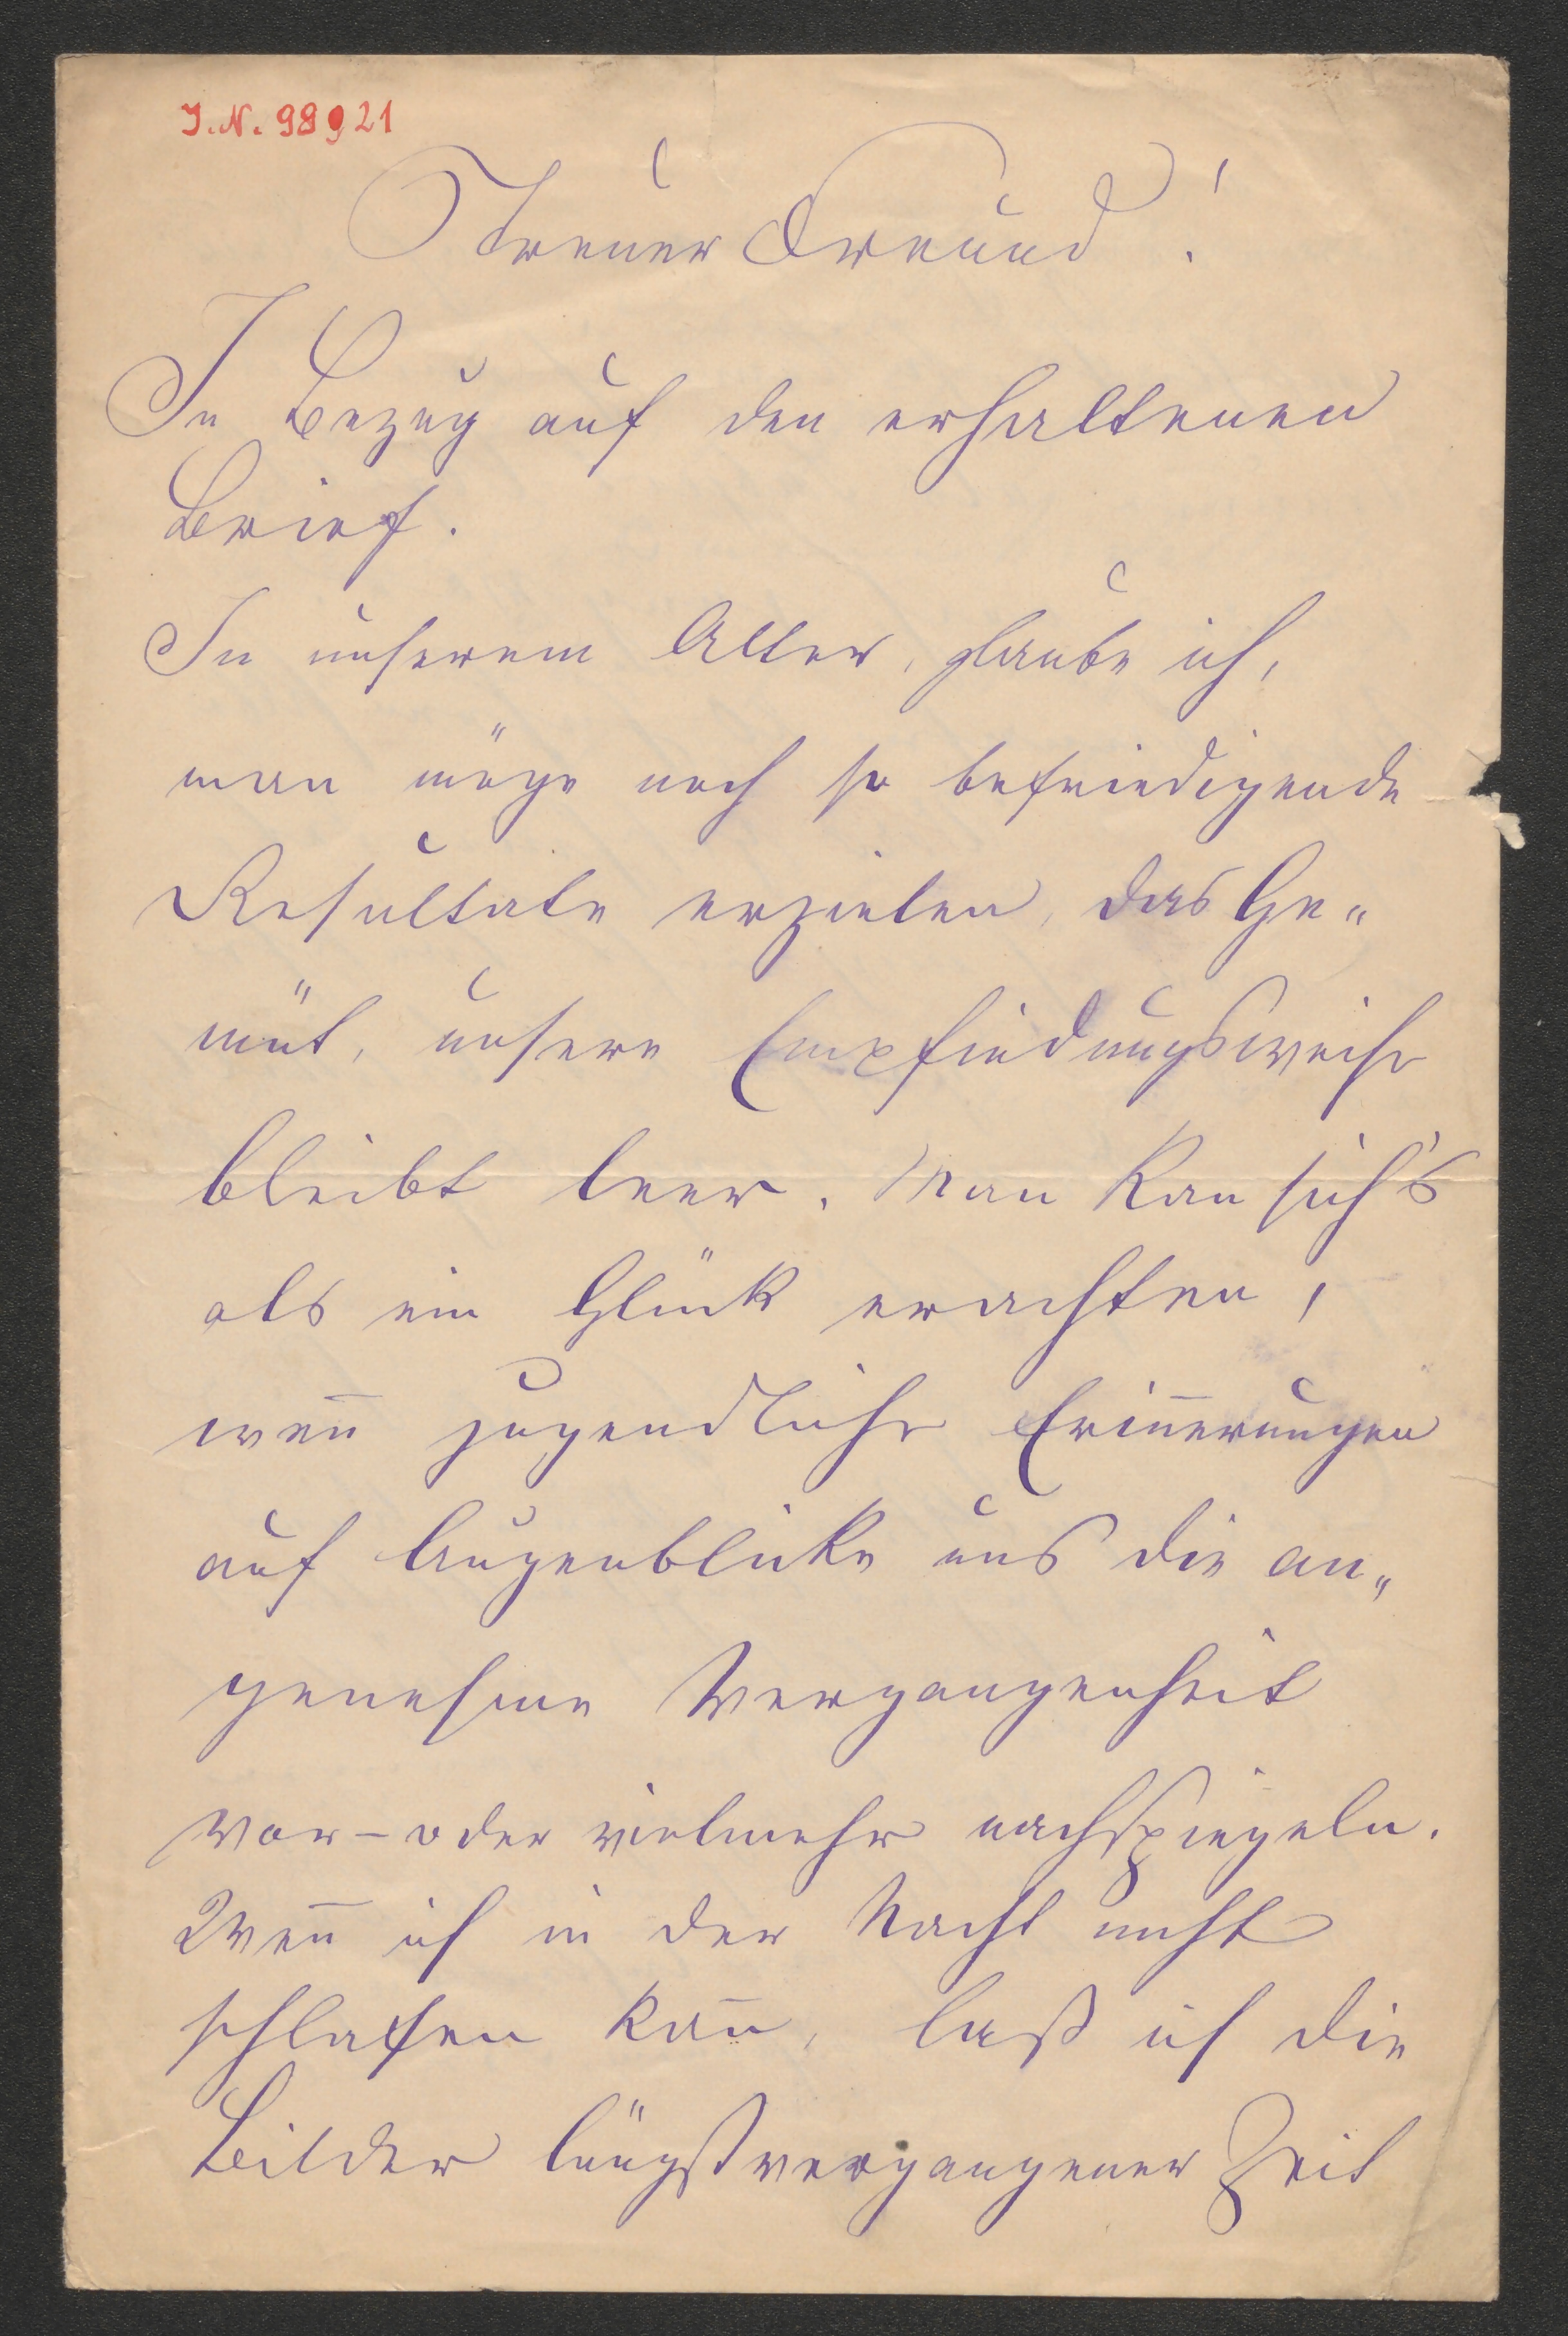 J.N. 98921
Treuer Freund!
In Bezug auf den erhaltenen
Brief.
In unserem Alter, glaube ich,
man möge noch so befriedigende
Resultate erzielen, das Ge„
müt, unsere Empfindungsweise
bleibt leer. Man kan sich's
als ein Glück erachten,
wen̅ jugendliche Erin̅erungen
auf Augenblicke uns die an„
genehme Vergangenheit
vor- oder vielmehr nachspiegeln.
Wen̅ ich in der Nacht nicht
schlafen kan̅, laß ich die
Bilder längstvergangener Zeit